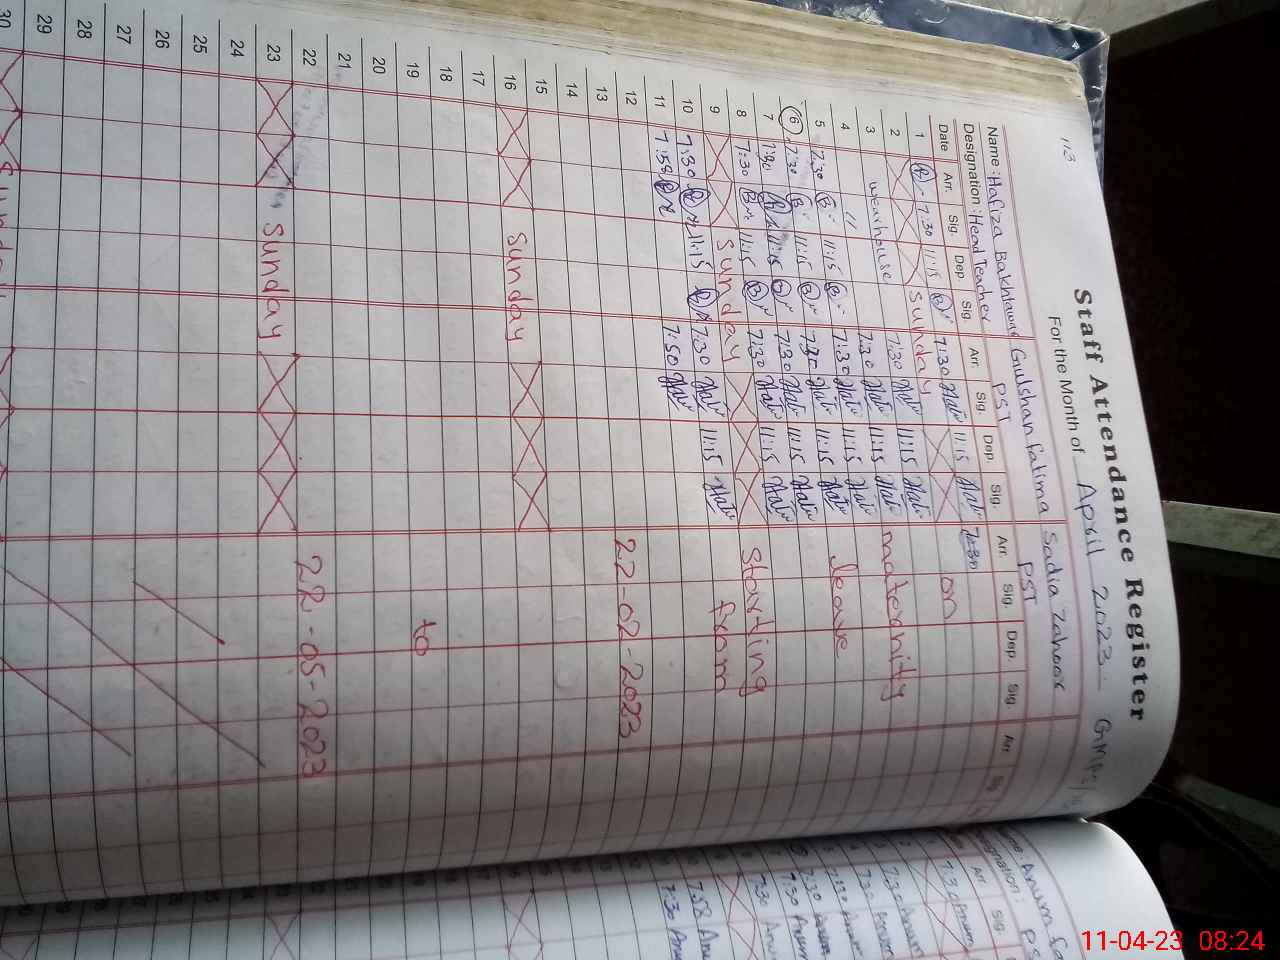 113
Staff Attendance Register
For the Month of April 2023
Name : Hafiza Bakhtawar Gulshan fatima Sadia Zahoor
Designation : Head Teacher PST PST
Date Arr. Sig. Dep. Sig. Arr. Sig. Dep. Sig. Arr. Sig. Dep. Sig. Arr.
1 7:30 11:15 7:30 11:15 7:30
2 Sunday on
3 wearhouse 7:30 11:15 maternity
4 " 7:30 11:15
5 7:30 11:15 7:30 11:15 leave
6 7:30 11:15 7:30 11:15
7 7:30 11:15 7:30 11:15
8 7:30 11:15 7:30 11:15 Starting
9 Sunday from
10 7:30 11:15 7:30 11:15
11 7:58 7:50
12 22-02-2023
13
14
15
16 Sunday
17
18
19 to
20
21
22 28-05-2023
23 Sunday
24
25
26
27
28
29
30 Sunday
Anum
PS
Arr. Sig.
7:30 Anum
7:30 Anum
7:30 Anum
7:30 Anum
7:30 Anum
7:30 Anum
7:58
7:30
11-04-23 08:24